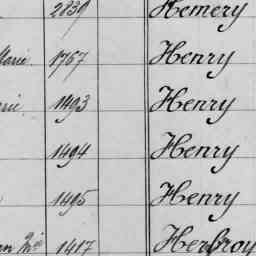 2839 Hemery
Marie 1767 Henry
1493 Henry
1494 Henry
1495 Henry
1417 Herbroy